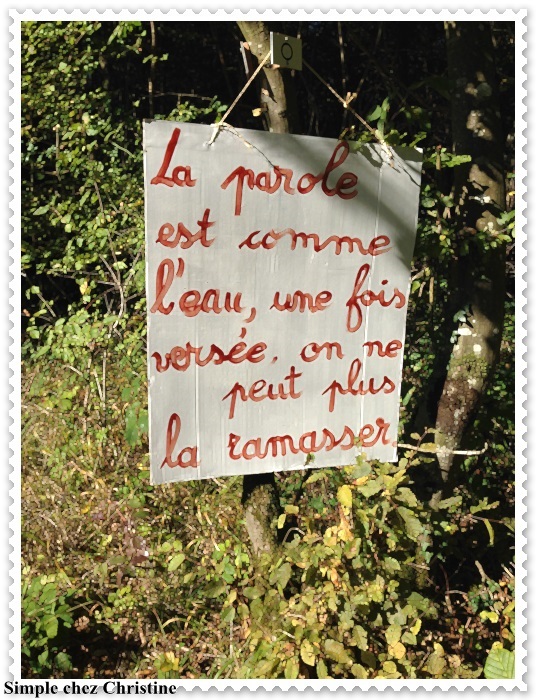 La parole
est comme
l'eau, une fois
versée, on ne
peut plus
la ramasser.
Simple chez Christine